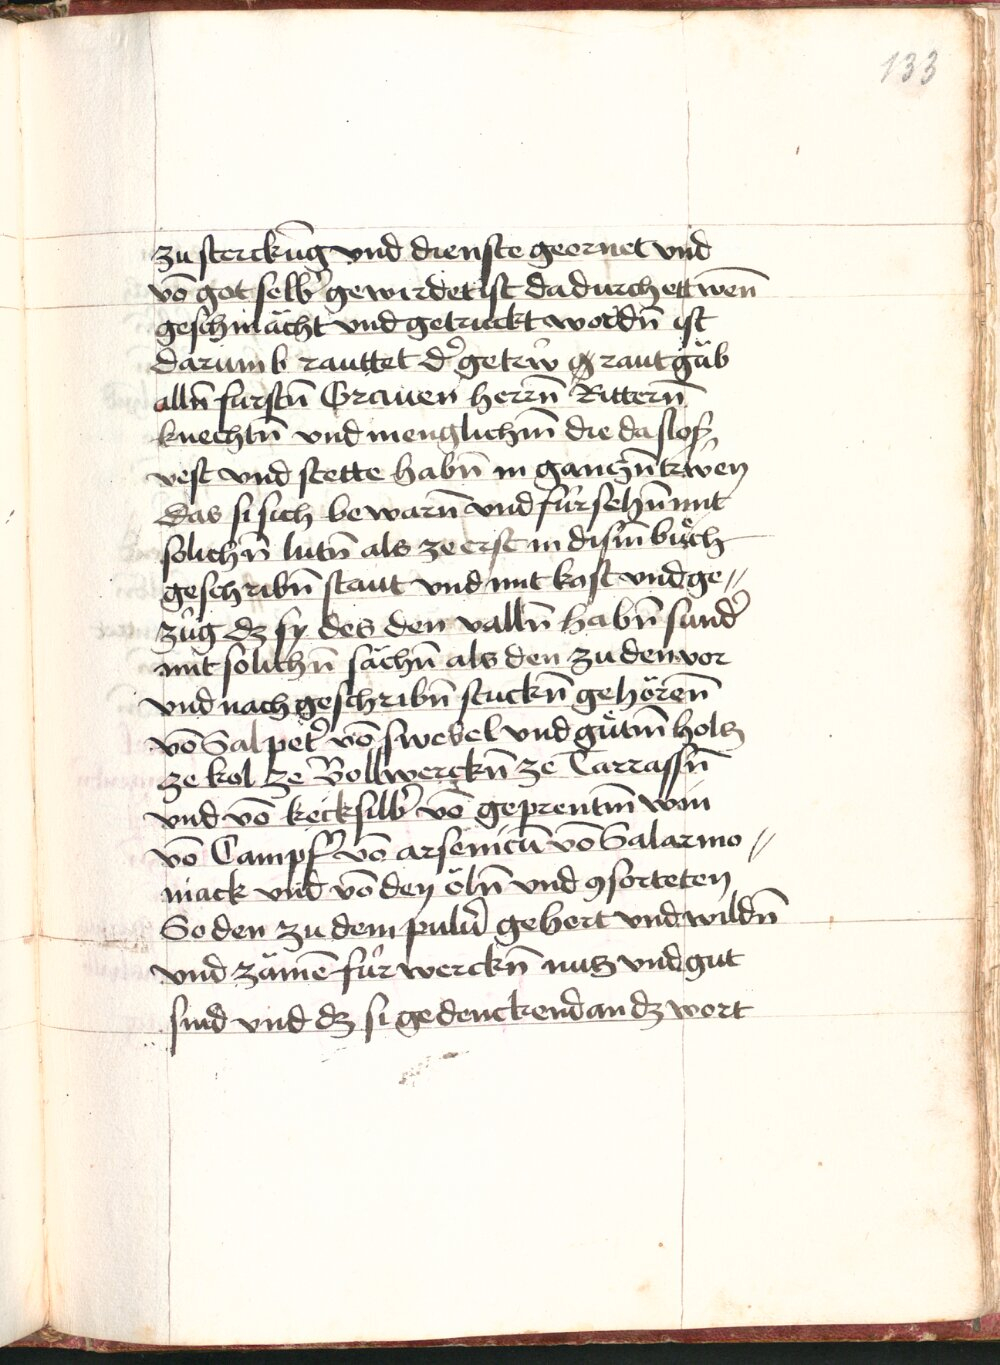 133
zu sterckūg vnd dienste geornet vnd
vō got selb' gewirdet ist dadurch ettwen̄
geschmächt vnd getruckt wordn̄ ist
darumb rauttet d' getrw̑ rautgäb
alln̄ furstn̄ Grauen herrn̄ Rittern̄
knechtn̄ vnd menglichm̄ die da slos
vest vnd stette habn̄ in gantzn̄ trẘen
das si sich bewarn̄ vnd fürsehn̄ mit
solichn̄ lutn̄ als ze erst in disem̄ bůch
geschribn̄ staut vnd mit kost vnd ge〃
züg dz sy des den valln̄ habn̄ sund'
mit solichn̄ sächn̄ als den zu den vor
vnd nach geschribn̄ stuckn̄ gehören̄
vō Salpet' vō swebel vnd gůtem̄ holtz
ze kol ze Bollwerckn̄ ze Tarrassn̄
vnd vō kecksilb' vō geprentm̄ win
vō Campf' vō arsenicū vō Salarmo〃
niack vnd vō den öln̄ vnd ꝯforteten
So den zu dem pulu' gehort vnd wildn̄
vnd zämē fürwerckn̄ nutz vnd gut
sind vnd dz si gedenckend an dz wort